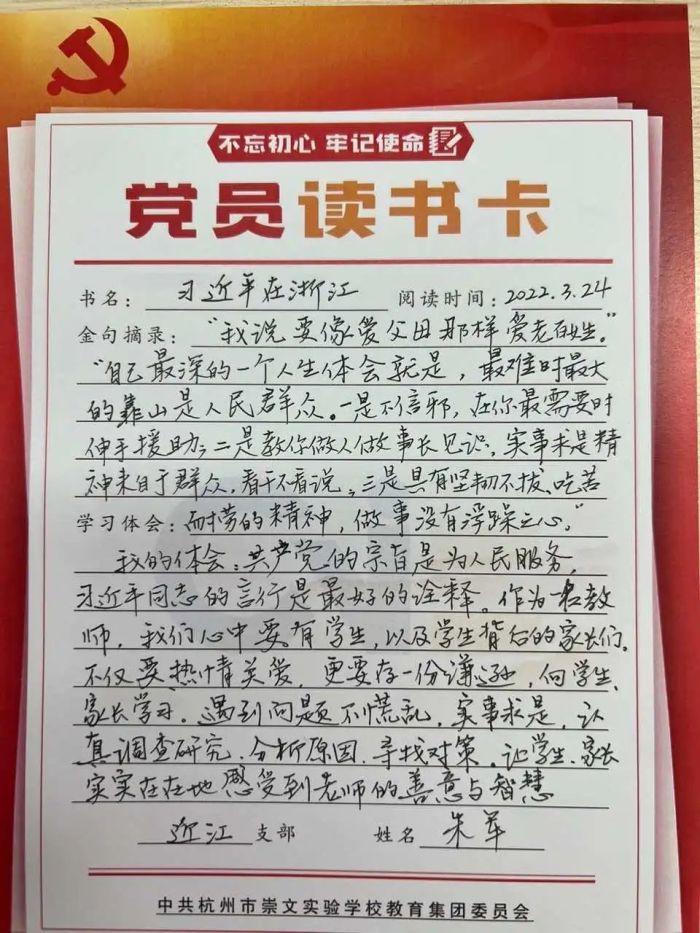 不忘初心 牢记使命
党员读书卡
书名：习近平在浙江 阅读时间：2022.3.24
金句摘录：“我说要像爱父母那样爱老百姓。”
“自己最深的一个人生体会就是，最难时最大
的靠山是人民群众。一是不信邪，在你最需要时
伸手援助；二是教你做人做事长见识，实事求是精
神来自于群众，看干不看说。三是具有坚韧不拔、吃苦
学习体会：耐劳的精神，做事没有浮躁之心。”
我的体会：共产党的宗旨是为人民服务，
习近平同志的言行是最好的诠释。作为一名教
师，我们心中要有学生，以及学生背后的家长们。
不仅要热情关爱，更要存一份谦逊，向学生、
家长学习。遇到问题不慌乱，实事求是，认
真调查研究、分析原因、寻找对策。让学生、家长
实实在在地感受到老师的善意与智慧
近江支部 姓名 朱苹
中共杭州市崇文实验学校教育集团委员会